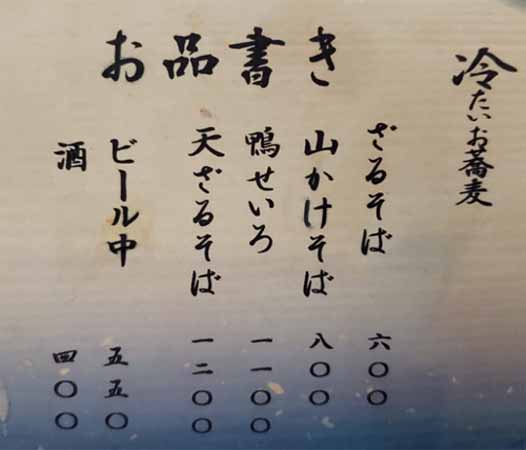 お品書き
冷たいお蕎麦
ざるそば 六〇〇
山かけそば 八〇〇
鴨せいろ 一一〇〇
天ざるそば 一二〇〇
ビール中 五五〇
酒 四〇〇